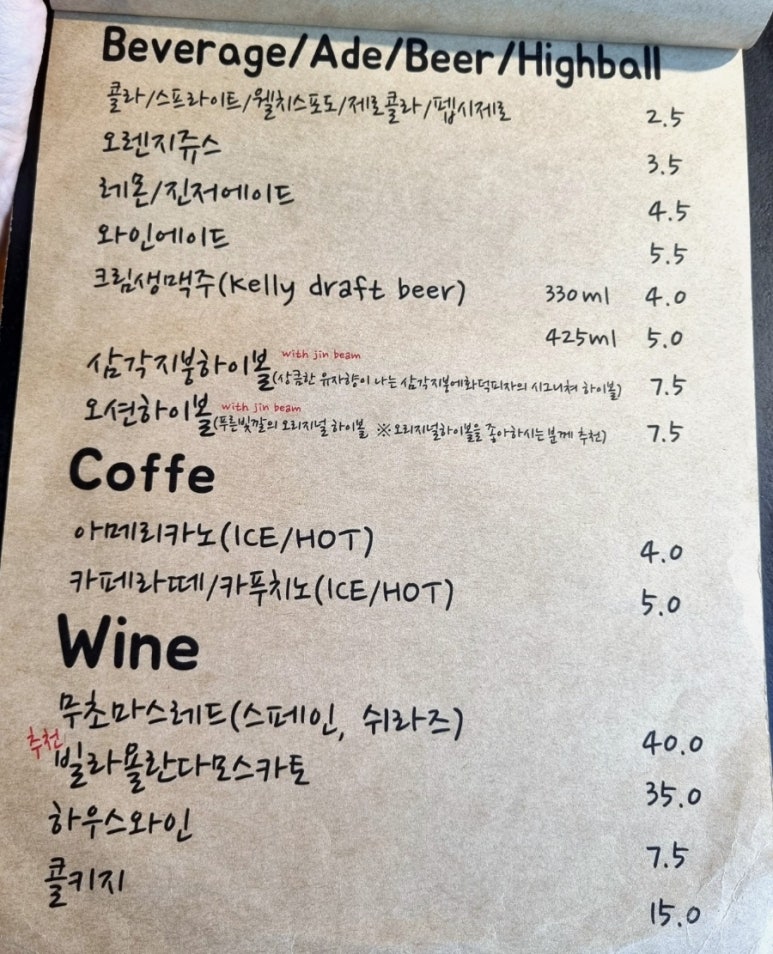 Beverage/Ade/Beer/Highball
콜라/스프라이트/웰치스포도/제로콜라/펩시제로 2.5
오렌지쥬스 3.5
레몬/진저에이드 4.5
와인에이드 5.5
크림생맥주(Kelly draft beer) 330ml 4.0
425ml 5.0
삼각지붕하이볼 with jin beam (상큼한 유자향이 나는 삼각지붕에화덕피자의 시그니쳐 하이볼) 7.5
오션하이볼 with jin beam (푸른빛깔의 오리지널 하이볼 ※오리지널하이볼을 좋아하시는 분께 추천) 7.5
Coffe
아메리카노(ICE/HOT) 4.0
카페라떼/카푸치노(ICE/HOT) 5.0
Wine
무초마스레드(스페인, 쉬라즈) 40.0
추천 빌라욜란다모스카토 35.0
하우스와인 7.5
콜키지 15.0